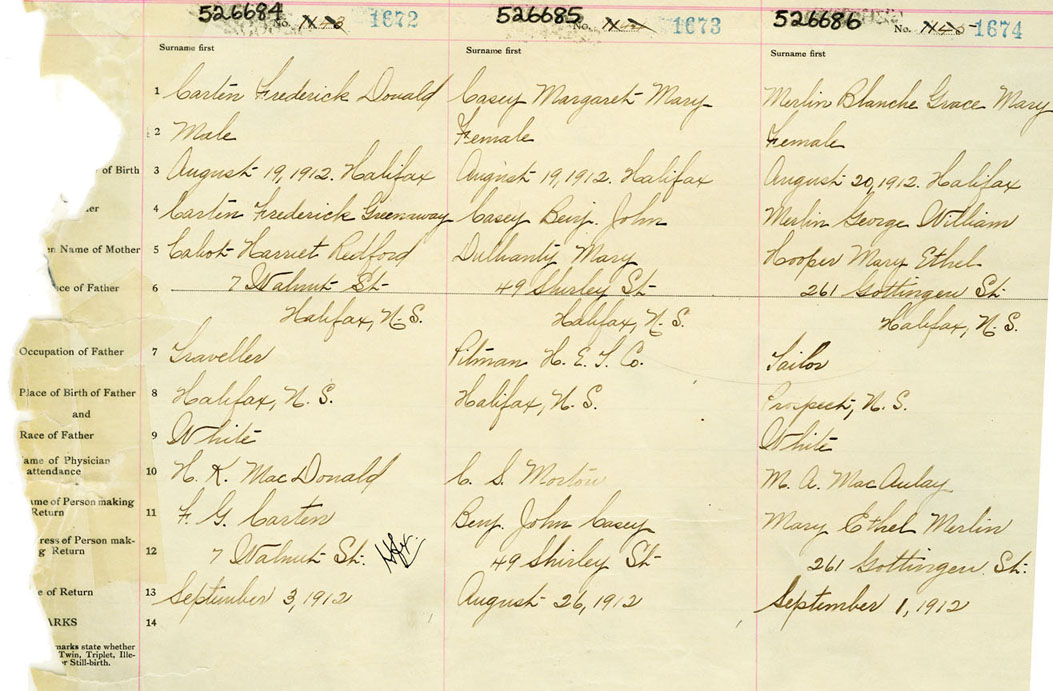 526684 No. 1672
526685 No. 1673
526686 No. 1674
Surname first Surname first Surname first
1 Carten Frederick Donald Casey Margaret Mary Merlin Blanche Grace Mary
2 Male Female Female
of Birth 3 August 19, 1912. Halifax August 19, 1912. Halifax August 20, 1912. Halifax
4 Carten Frederick Greenway Casey Benj. John Merlin George William
Name of Mother 5 Cabot Harriet Redford Dulhanty Mary Hooper Mary Ethel
of Father 6 7 Walnut St. 49 Shirley St 261 Gottingen St.
Halifax, N.S. Halifax, N.S. Halifax, N.S.
Occupation of Father 7 Traveller Pitman H. E. T. Co. Tailor
Place of Birth of Father 8 Halifax, N.S. Halifax, N.S. Prospect, N.S.
and
Race of Father 9 White White
ame of Physician
attendance 10 H. K. MacDonald C. S. Morton M. A. MacAulay
ame of Person making
Return 11 F. G. Carten Benj. John Casey Mary Ethel Merlin
ress of Person mak-
g Return 12 7 Walnut St. 49 Shirley St 261 Gottingen St.
e of Return 13 September 3, 1912 August 26, 1912 September 1, 1912
ARKS 14
marks state whether
Twin, Triplet, Ille-
or Still-birth.